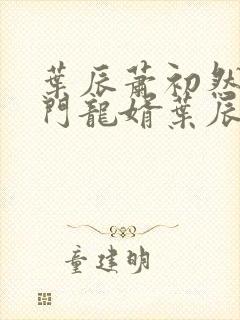 葉辰蕭初然
門龍婿葉辰
童建明